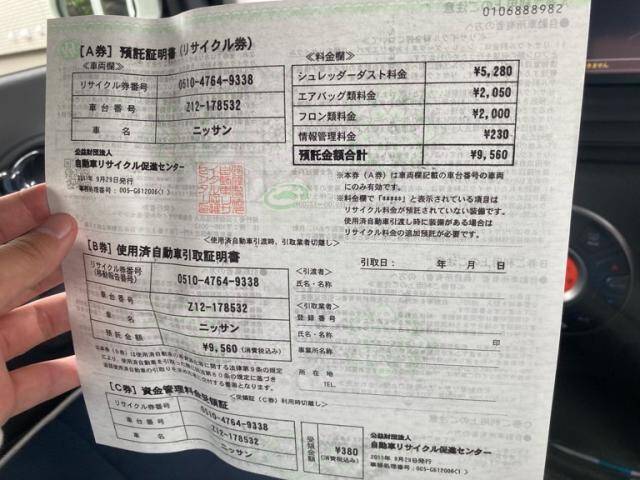 0106888982
[A券] 預託証明書(リサイクル券)
<車両欄>
リサイクル券番号 0510-4764-9338
車台番号 Z12-178532
車名 ニッサン
公益財団法人
自動車リサイクル促進センター
2011年 9月29日発行
事務処理番号:005-G612006(1)
<料金欄>
シュレッダーダスト料金 ¥5,280
エアバッグ類料金 ¥2,050
フロン類料金 ¥2,000
情報管理料金 ¥230
預託金額合計 ¥9,560
※本券(A券)は車両欄記載の車台番号の車両
にのみ有効です。
※料金欄で「*****」と表示されている項目は
リサイクル料金が預託されていない装備です。
使用済自動車引渡し時に装備がある場合は
リサイクル料金の追加預託が必要です。
<使用済自動車引渡時、引取業者切離し>
[B券] 使用済自動車引取証明書
リサイクル券番号
(移動報告番号) 0510-4764-9338
車台番号 Z12-178532
車名 ニッサン
預託金額 ¥9,560(消費税込み)
引取日: 年 月 日
<引渡者>
氏名・名称
<引取業者>
登録番号
氏名・名称 印
事業所名
所在地
TEL.
<受領証(C券)利用時切離し>
[C券] 資金管理料金受領証
リサイクル券番号 0510-4764-9338
車台番号 Z12-178532
車名 ニッサン
受領金額 ¥380
(消費税込み)
公益財団法人
自動車リサイクル促進センター
2011年 9月29日発行
事務処理番号:005-G612006(1)